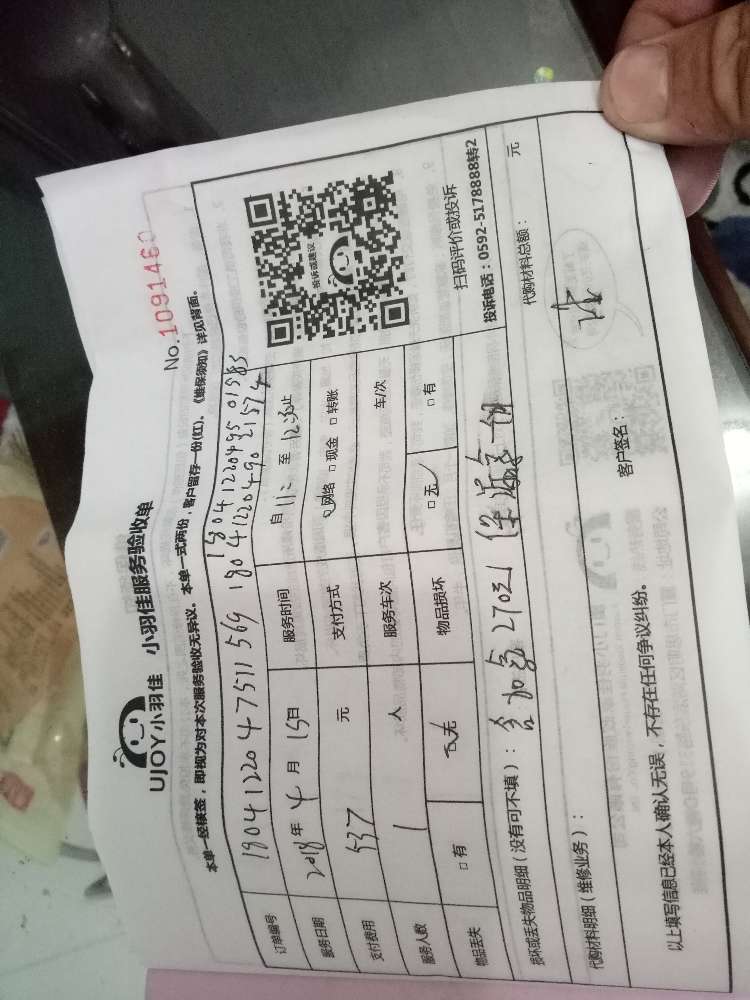 UJOY小羽佳 小羽佳服务验收单
No.1091460
本单一经核签，即视为对本次服务验收无异议。本单一式两份，客户留存一份(红)。《维保须知》详见背面。
订单编号 180412204751156G 180412204950198S
18041220490 21574
服务日期 2018年4月15日 服务时间 自11:至12:30止
支付费用 537 元 支付方式 □网络 □现金 □转账
服务人数 1 人 服务车次 车/次
物品丢失 □有 □无 物品损坏 □无 □有
投诉或建议
扫码评价或投诉
投诉电话：0592-5178888转2
损坏或丢失物品明细（没有可不填）： 加氟270元
代购材料明细（维修业务）：
代购材料总额： 元
以上填写信息已经本人确认无误，不存在任何争议纠纷。
客户签名：